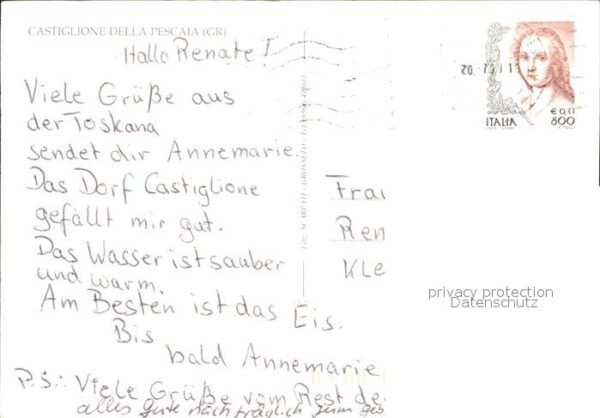 CASTIGLIONE DELLA PESCAIA (GR)
Hallo Renate!
Viele Grüße aus
der Toskana
sendet dir Annemarie.
Das Dorf Castiglione
gefällt mir gut.
Das Wasser ist sauber
und warm.
Am Besten ist das Eis.
Bis
bald Annemarie
P.S.: Viele Grüße vom Rest de
alles gute nachträglich zum
ITALIA
€ 0,41
800
Frau
Ren
Kle
privacy protection
Datenschutz